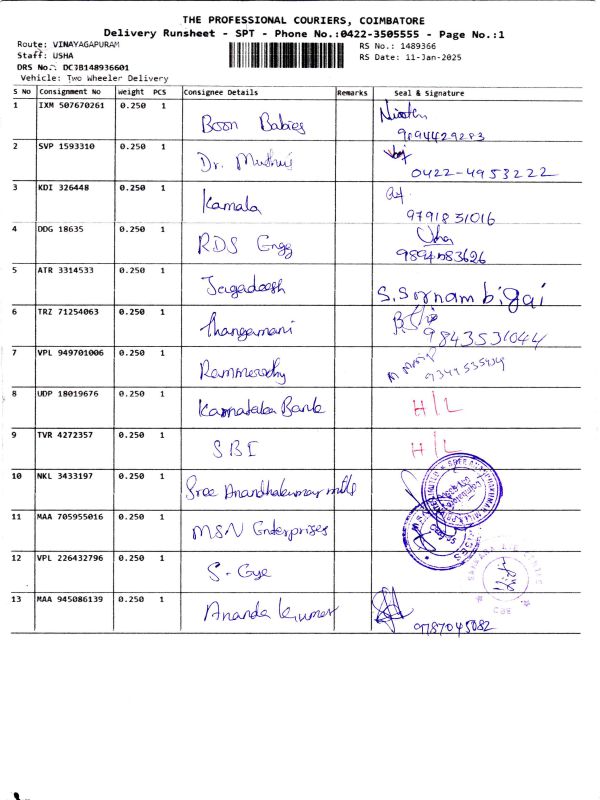 THE PROFESSIONAL COURIERS, COIMBATORE
Delivery Runsheet - SPT - Phone No.:0422-3505555 - Page No.:1
Route: VINAYAGAPURAM
Staff: USHA
DRS No.: DC3B148936601
Vehicle: Two Wheeler Delivery
RS No.: 1489366
RS Date: 11-Jan-2025
S No Consignment No Weight PCS Consignee Details Remarks Seal & Signature
1 IXM 507670261 0.250 1 Boon Babies
9894429283
2 SVP 1593310 0.250 1 Dr. Muthu
0422-4953222
3 KDI 326448 0.250 1 Kamala
9791831016
4 DDG 18635 0.250 1 RDS Engg Usha
9894583626
5 ATR 3314533 0.250 1 Jagadeesh S.Sornambigai
6 TRZ 71254063 0.250 1 Thangamani
9843531044
7 VPL 949701006 0.250 1 Rammoorthy
8 UDP 18019676 0.250 1 Karnataka Bank H/L
9 TVR 4272357 0.250 1 SBI H/L
10 NKL 3433197 0.250 1 Sree Anandhakumar mills
11 MAA 705955016 0.250 1 MSN Enterprises
12 VPL 226432796 0.250 1 S-Eye
SANKARA EYE CENTRE
CBE
13 MAA 945086139 0.250 1 Ananda Kumar
9787045082